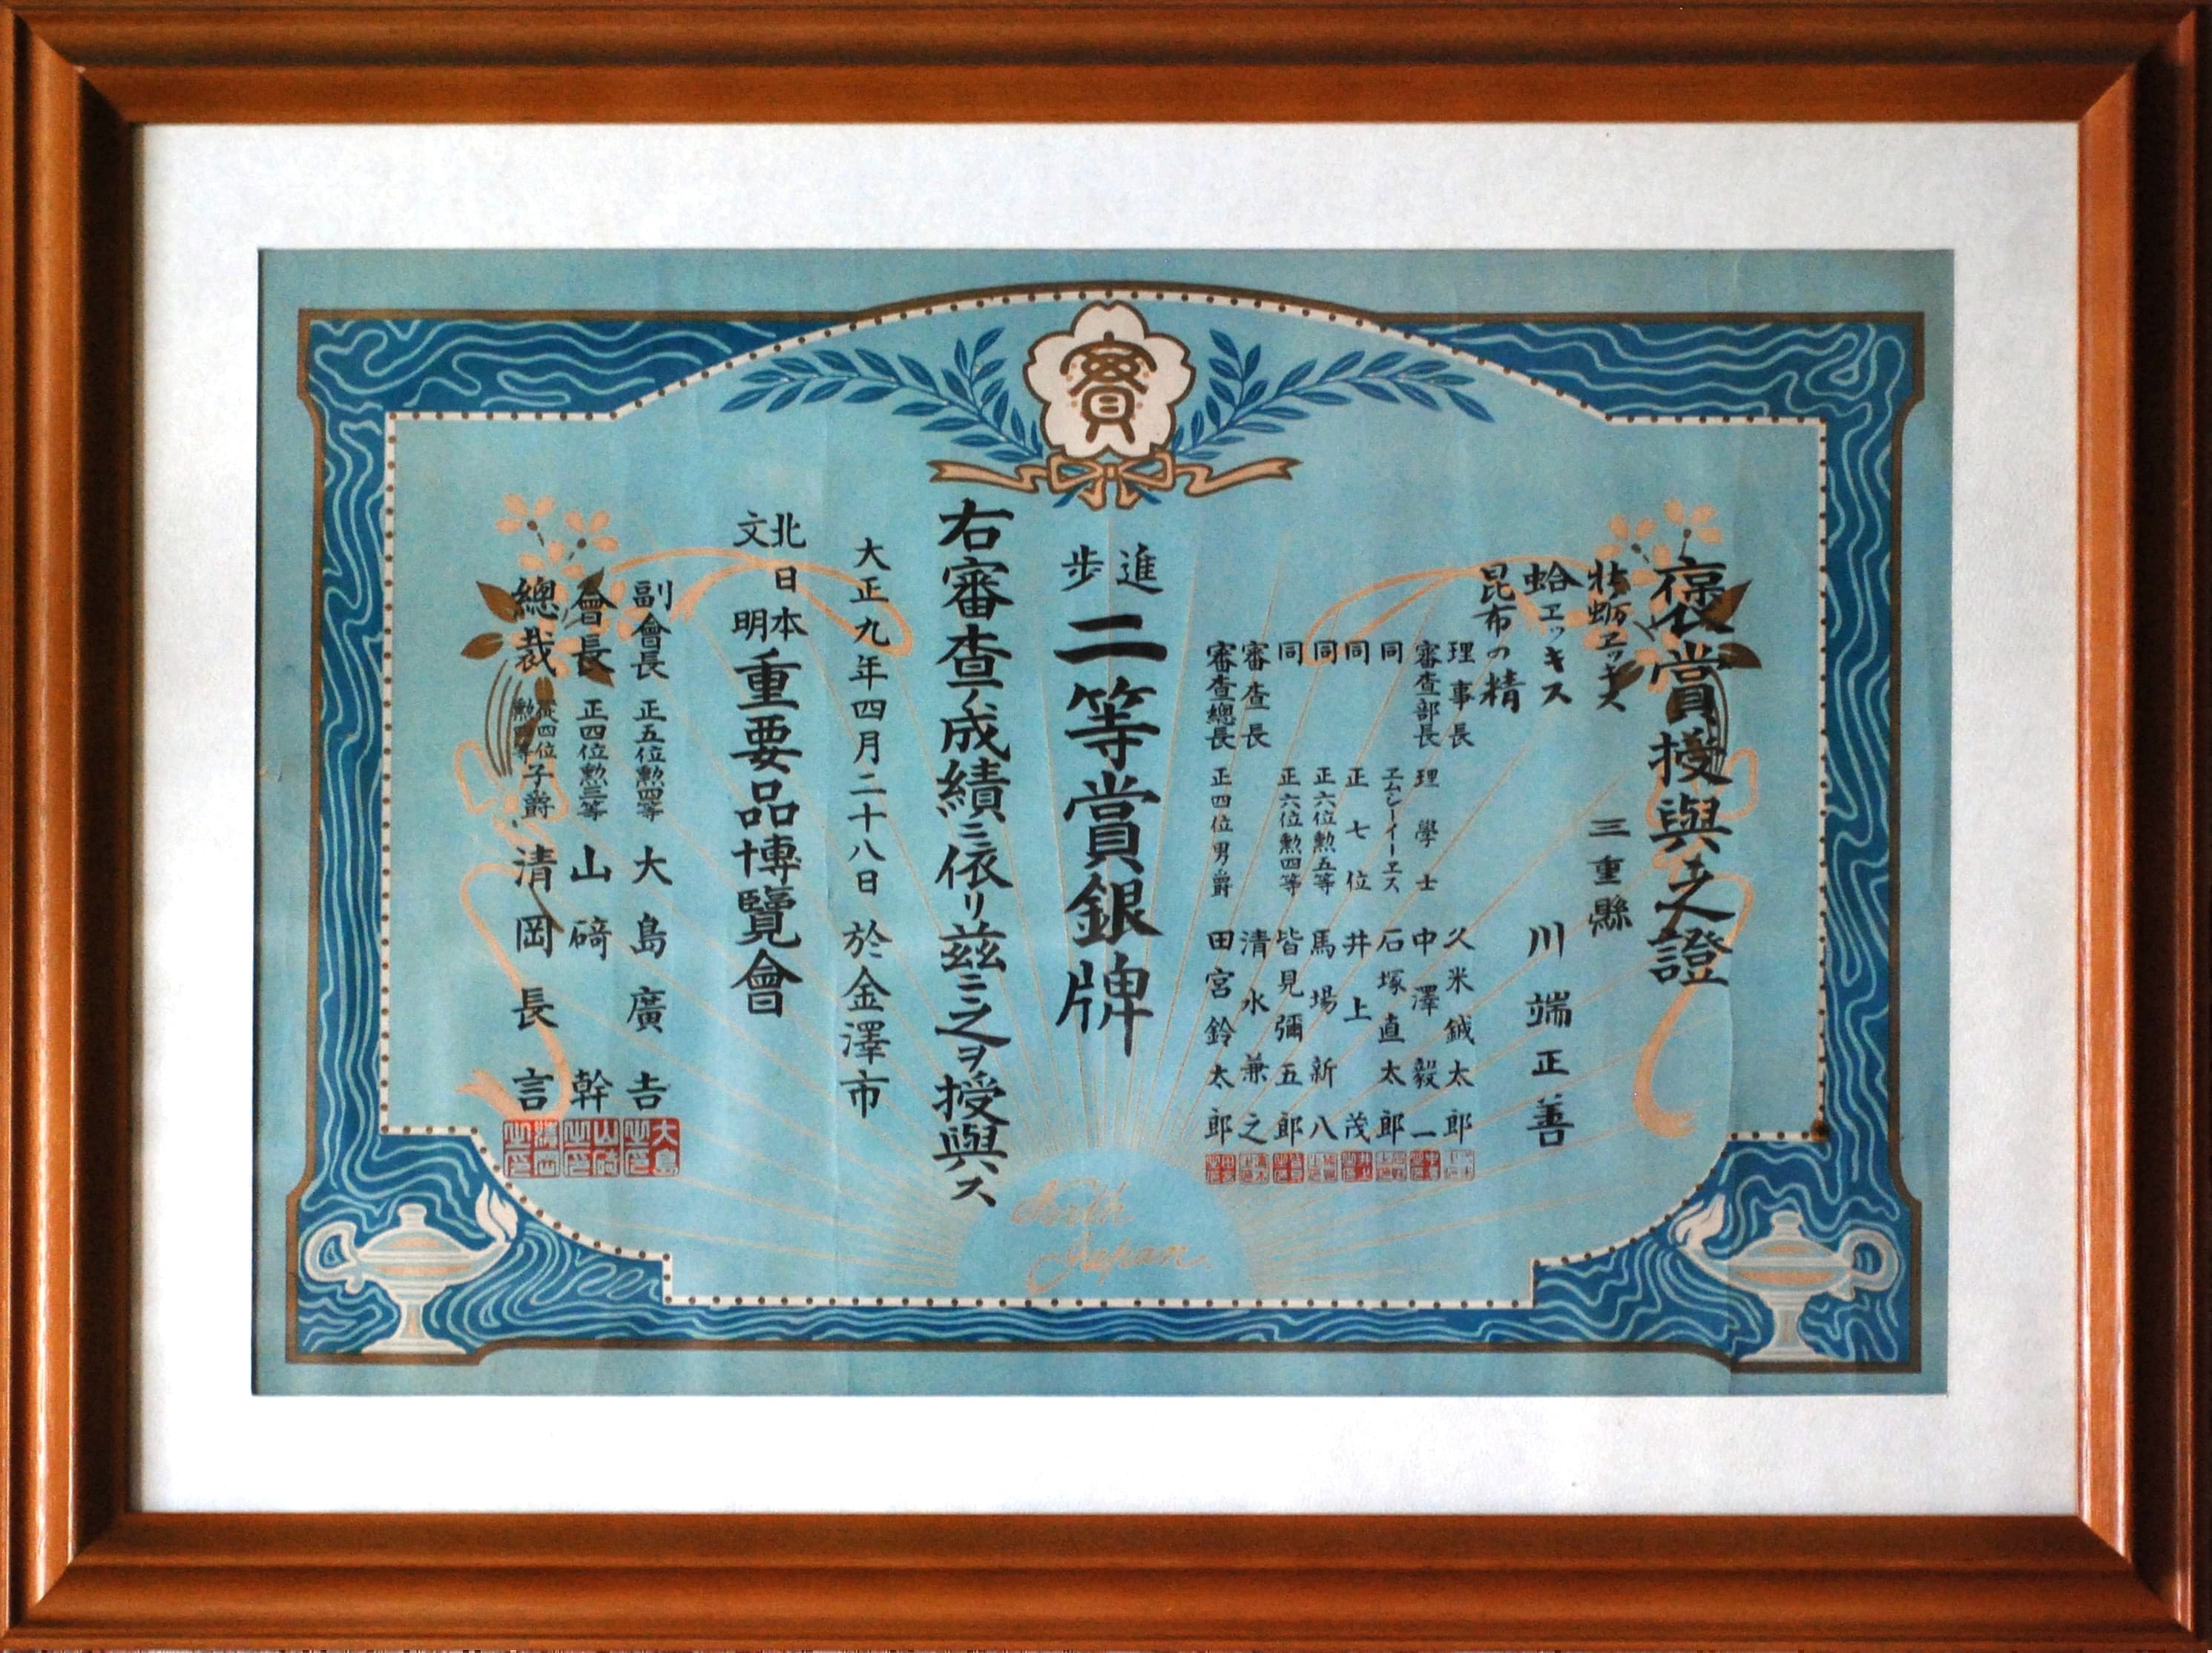 賞
褒賞授與之證
牡蛎エッキス
三重縣
蛤エッキス
川端正善
昆布の精
理事長 久米鉞太郎
審査部長 理學士 中澤毅一
同 エムシーイーエス 石塚直太郎
同 正七位 井上茂
同 正六位勲五等 馬場新八
同 正六位勲四等 皆見彌五郎
審査長 清水兼之
審査總長 正四位男爵 田宮鈴太郎
進歩 二等賞銀牌
右審査ノ成績ニ依リ茲ニ之ヲ授與ス
大正九年四月二十八日 於金澤市
北日本
文明
重要品博覽會
副會長 正五位勲四等 大島廣吉
會長 正四位勲三等 山﨑幹
總裁 從四位勲四等子爵 清岡長言
North
Japan.